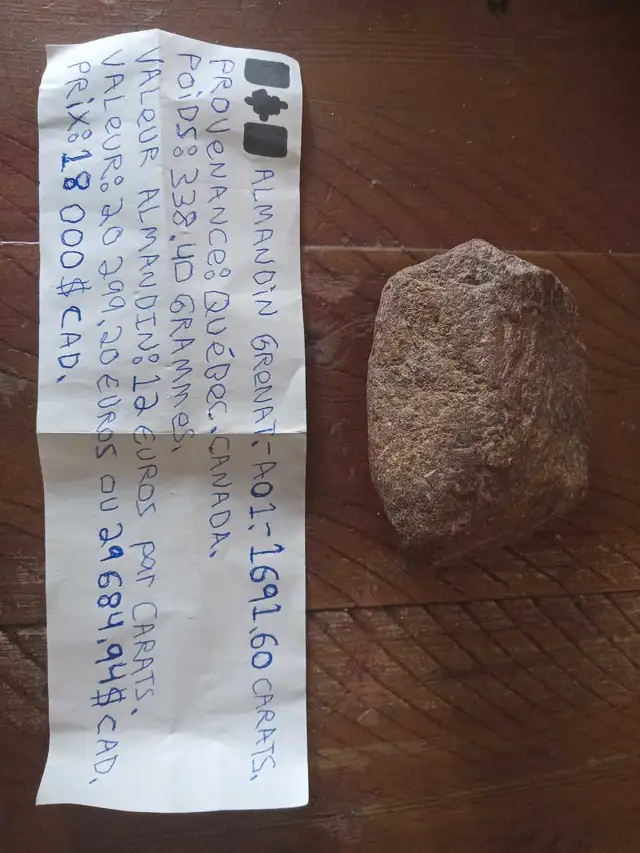 ALMANDiN GRENAT.-A01.-1691,60 CARATS.
PROVENANCE: QUÉBEC, CANADA.
POiDS: 338,40 GRAMMES.
VALEUR ALMANDiN: 12 EUROS par CARATS.
VALEUR: 20 299,20 EUROS OU 29684,94$ CAD.
PRiX: 18 000$ CAD.